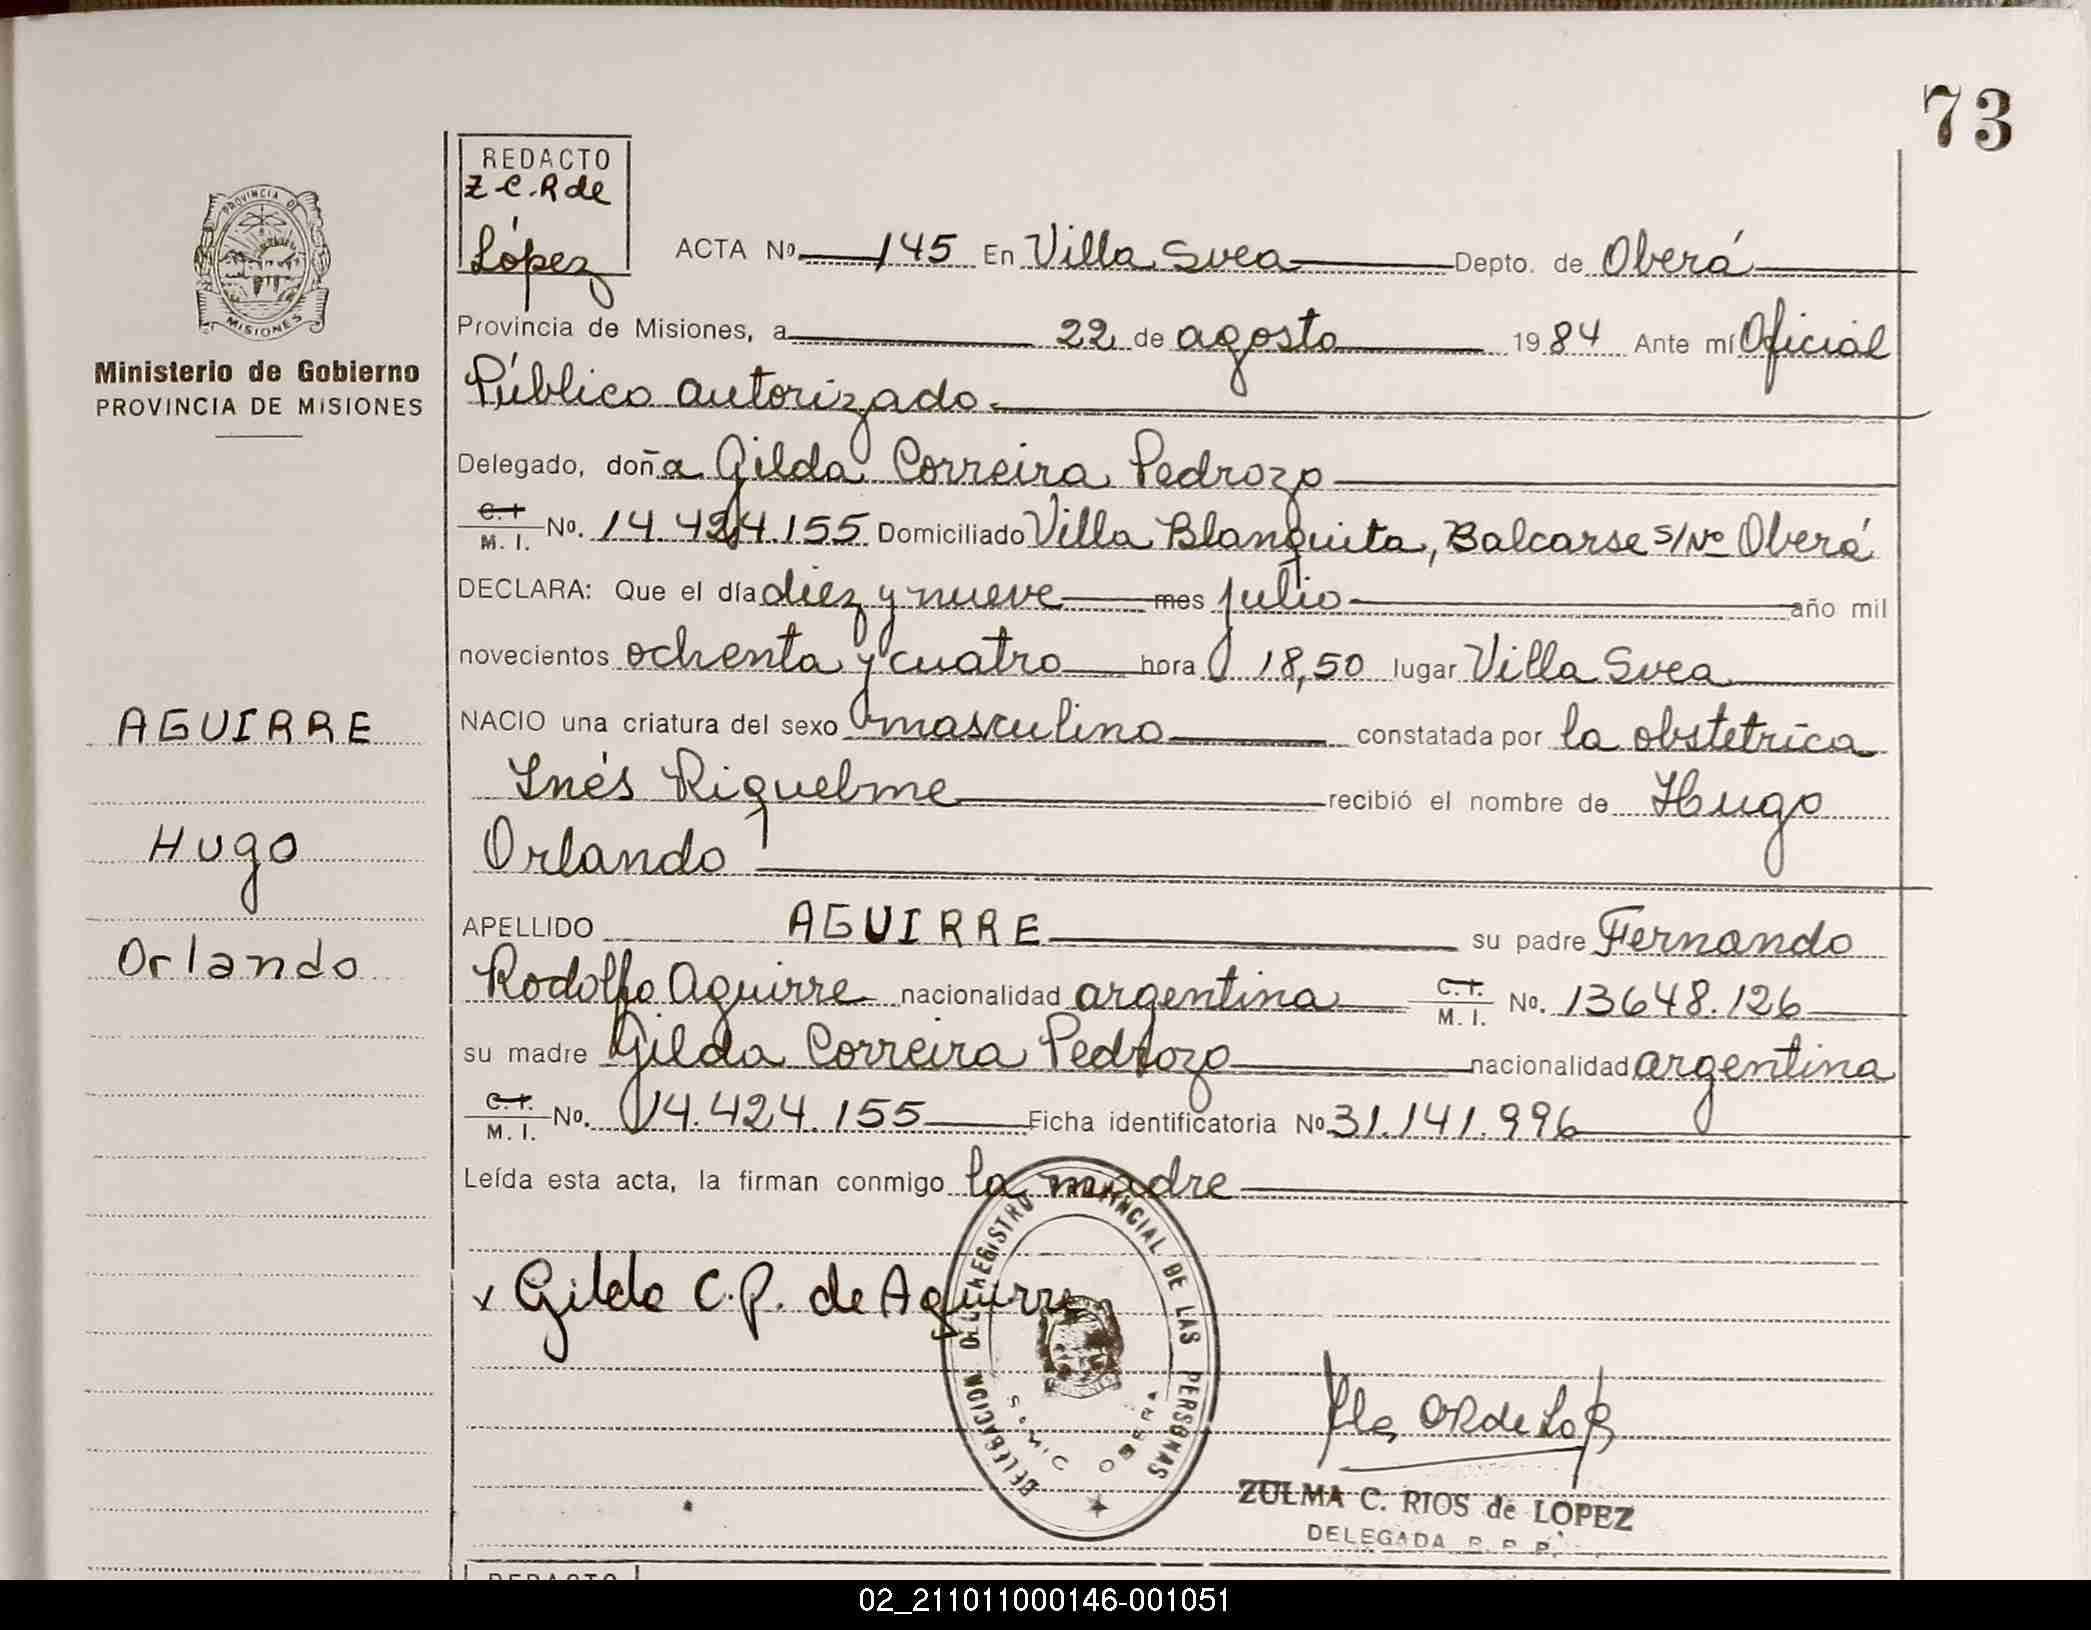 73
PROVINCIA DE
MISIONES
Ministerio de Gobierno
PROVINCIA DE MISIONES
AGUIRRE
Hugo
Orlando
REDACTO
Z.C.R de
López
ACTA Nº 145 En Villa Svea Depto. de Oberá
Provincia de Misiones, a 22 de agosto 1984 Ante mí Oficial
Público autorizado.
Delegado, doña Gilda Correira Pedrozo
C.I. M.I. No. 14.424.155 Domiciliado Villa Blanquita, Balcarse s/Nº Oberá
DECLARA: Que el día diez y nueve mes julio año mil
novecientos ochenta y cuatro hora 18,50 lugar Villa Svea
NACIO una criatura del sexo masculino constatada por la obstetrica
Inés Riquelme recibió el nombre de Hugo
Orlando
APELLIDO AGUIRRE su padre Fernando
Rodolfo Aguirre nacionalidad argentina C.I. M.I. No. 13648.126
su madre Gilda Correira Pedrozo nacionalidad argentina
C.I. M.I. No. 14.424.155 Ficha identificatoria No 31.141.996
Leída esta acta, la firman conmigo la madre
x Gilda C.P. de Aguirre
DELEGACION DEL REGISTRO PROVINCIAL DE LAS PERSONAS
OBERA
ZULMA C. RIOS de LOPEZ
DELEGADA R. P. P.
REDACTO
02_211011000146-001051